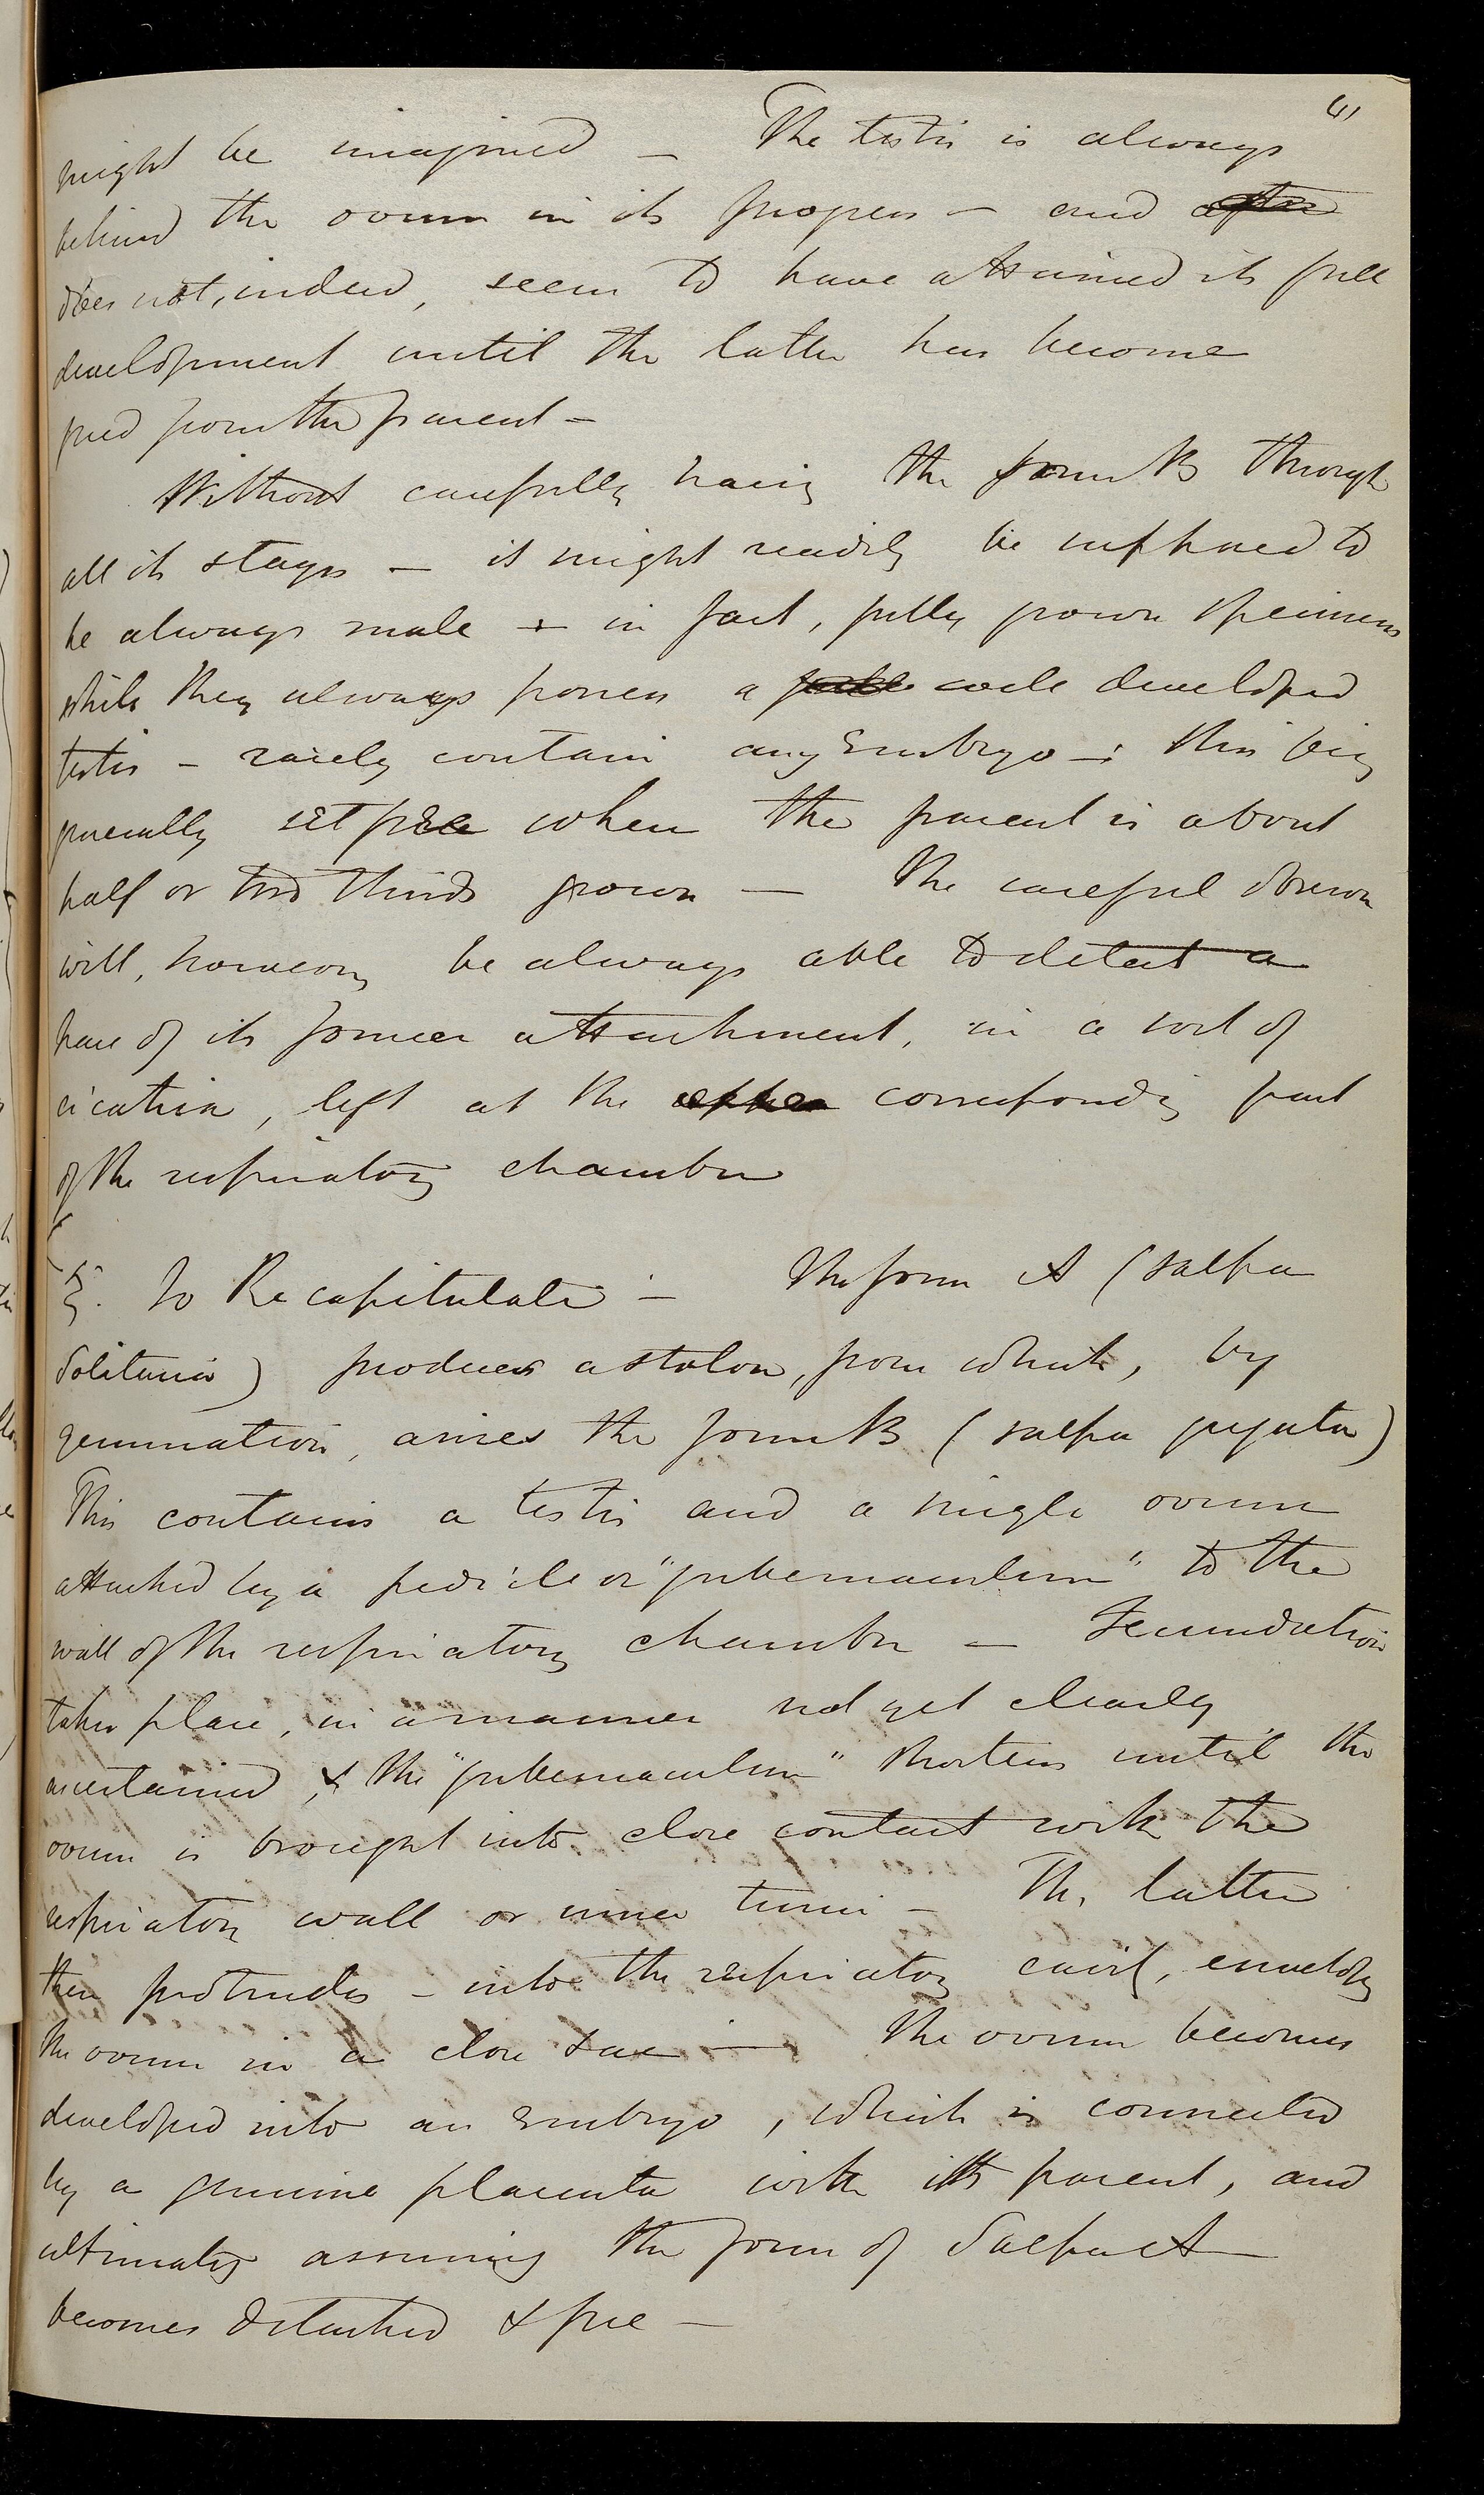 might be imagined — The testis is always
behind the ovum in its progress — and after
does not, indeed, seem to have attained its full
development until the latter has become
freed from the parent —
Without carefully tracing the form B through
all its stages — it might readily be supposed to
be always male — in fact, fully grown specimens
while they always possess a well developed
testis — rarely contain any Embryo —; this being
generally set free when the parent is about
half or two thirds grown — The careful observer
will, however, be always able to detect a
trace of its former attachment, in a sort of
cicatrix, left at the upper corresponding part
of the respiratory chamber
§. To Recapitulate — The form A (Salpa
Solitaria) produces a stolon, from which, by
gemmation, arises the form B (Salpa gregata)
This contains a testis and a single ovum
attached by a pedicle or "gubernaculum" to the
wall of the respiratory chamber — Fecundation
takes place, in a manner not yet clearly
ascertained, & the "gubernaculum" shortens until the
ovum is brought into close contact with the
respiratory wall or inner tunic — The latter
then protrudes — into the respiratory cavity, enveloping
the ovum in a close sac — The ovum becomes
developed into an Embryo, which is connected
by a genuine placenta with its parent, and
ultimately assuming the form of Salpa A —
becomes detached & free —